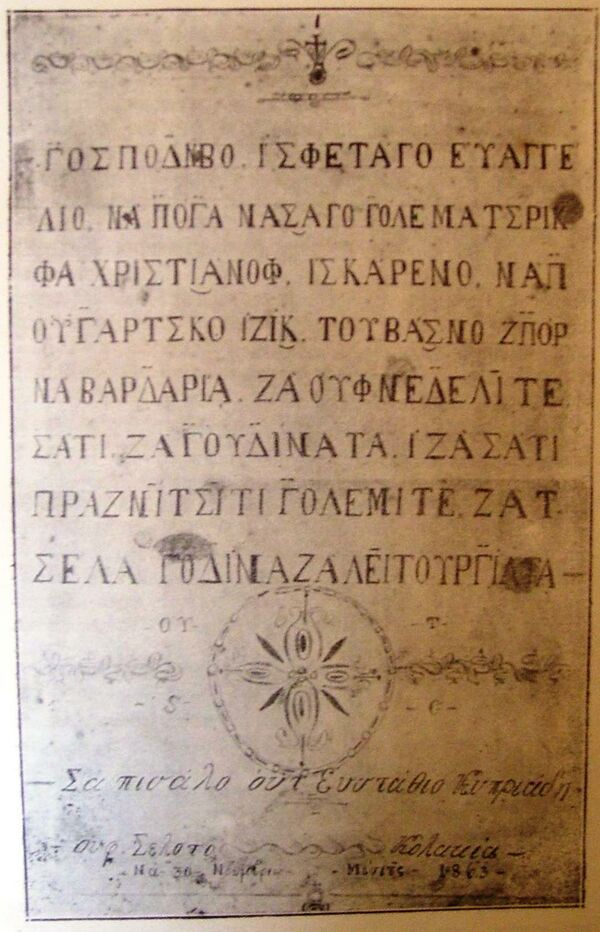 ΓΌΣΠΟΔ̈ΝΒΟ. ΪΣΦΕΤΑΓΟ ΕΥΑΓΓΕ
ΛΙΟ. ΝΑ Π̈ΟΓ̈Α ΝΑΣΑΓΟ Γ̈ΟΛΕΜΑ ΤΣΡΙΚ
ΦΑ ΧΡΙΣΤΙΑΝΟΦ. ΙΣΚΑΡΕΝΟ. ΝΑΠ̈
ΟΥΓ̈ΑΡΤΣΚΟ ΙΖΪΚ. ΤΟΥΒΑΣΝΟ ΖΠ̈ΟΡ
ΝΑ ΒΑΡΔ̈ΑΡΙΑ. ΖΑ ΟΥΦ ΝΕΔ̈ΕΛΪΤΕ
ΣΑΤΙ. ΖΑ Γ̈ΟΥΔ̈ΙΝΑΤΑ. Ϊ ΖΑ ΣΑΤΙ
ΠΡΑΖΝΪΤΣΪΤΙ Γ̈ΟΛΕΜΪΤΕ. ΖΑ Τ
ΣΕΛΑ Γ̈ΟΔ̈ΙΝΑ ΖΑ ΛΕΪΤΟΥΡΓ̈ΙΑΤΑ —
- ΟΥ - - Τ -
- S - - Θ -
— Σα πισάλο ὀύτ Ἐυστάθιο Κυπριάδη -
ουρ. Σέλοτο Κολακία —
- Να 30 Νοέμρι - Μέσιτς - 1863 -